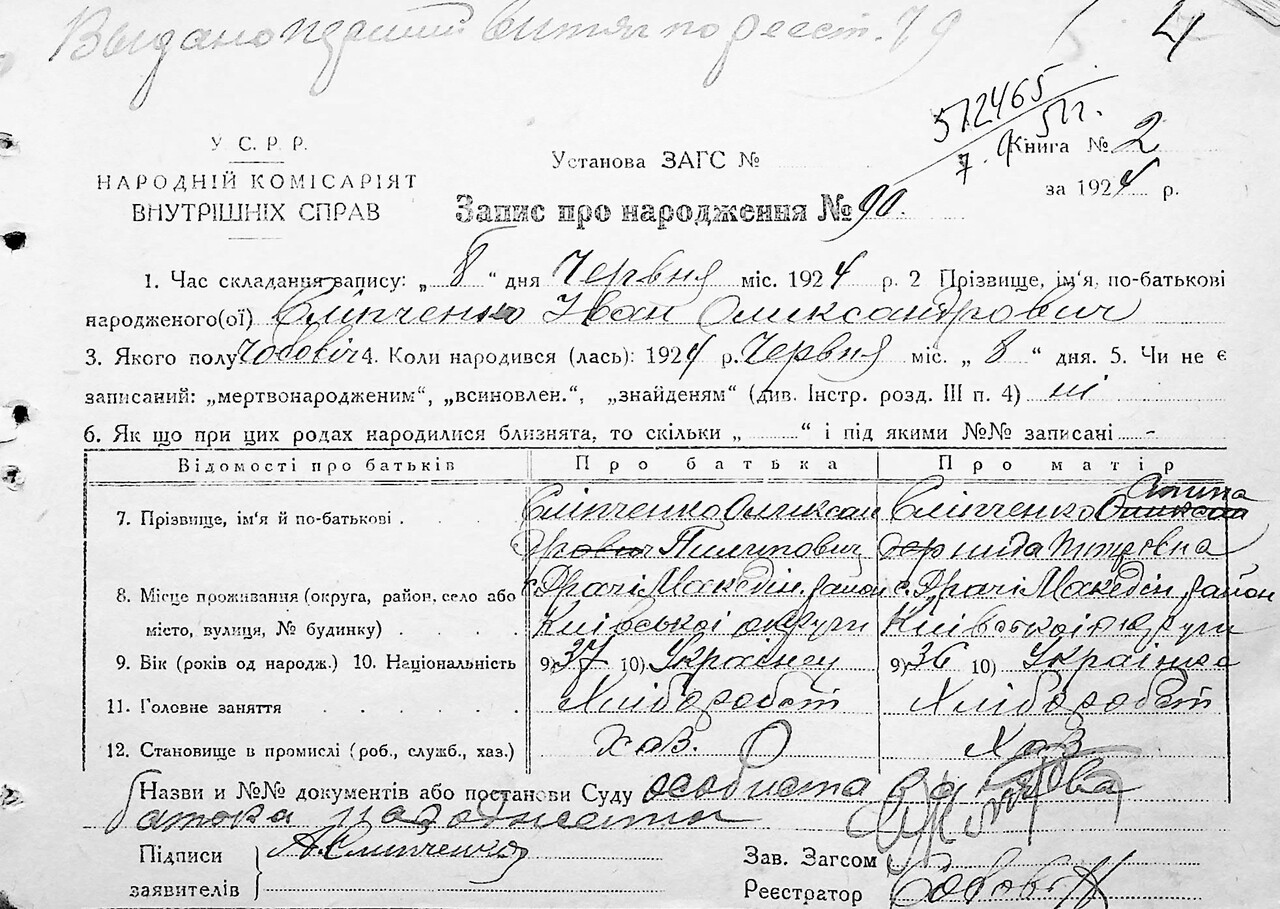 Выдано перший витяг по реест. 79
4
572465
7. 51 г.
У С. Р. Р.
НАРОДНІЙ КОМІСАРІЯТ
ВНУТРІШНІХ СПРАВ
Установа ЗАГС №
Книга № 2
за 1924 р.
Запис про народження № 90.
1. Час складання запису: „ 8 “ дня Червня міс. 1924 р. 2 Прізвище, ім'я, по-батькові
народженого(ої) Сліпченко Іван Олександрович
3. Якого полу чоловіч 4. Коли народився (лась): 1924 р. Червня міс. „ 8 “ дня. 5. Чи не є
записаний: „мертвонародженим“, „всиновлен.“, „знайденям“ (див. Інстр. розд. III п. 4) ні
6. Як що при цих родах народилися близнята, то скільки „ “ і під якими №№ записані -
Відомості про батьків Про батька Про матір
7. Прізвище, ім'я й по-батькові . Сліпченко Оликсан Сліпченко
Пилипович Петровна
8. Місце проживання (округа, район, село або с. Драчі Македін. район с. Драчі Македін. район
місто, вулиця, № будинку) . . . . Київської округи Київської округи
9. Вік (років од народж.) 10. Національність 9) 37 10) Українец 9) 36 10) Українка
11. Головне заняття . . . . . Хліборобст Хліборобст
12. Становище в промислі (роб., служб., хаз.) хаз. хаз
Назви и №№ документів або постанови Суду особиста заява
батька
Підписи
заявителів
А Слипченко
Зав. Загсом
Реєстратор